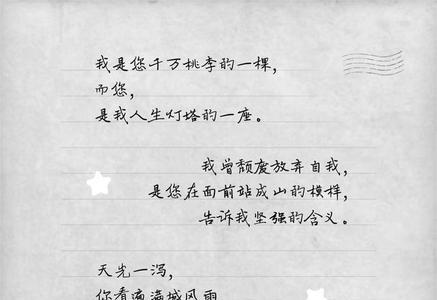 我是您千万桃李的一棵，
而您，
是我人生灯塔的一座。
我曾颓废放弃自我，
是您在面前站成山的模样，
告诉我坚强的含义。
天光一泻，
你看奔满城风雨